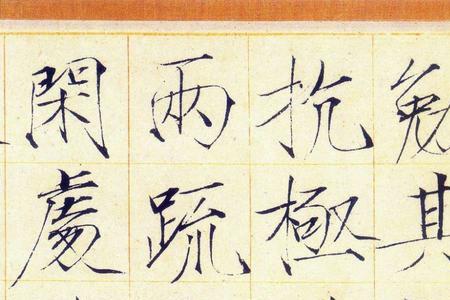 勉其
抗極
兩疏
閑處